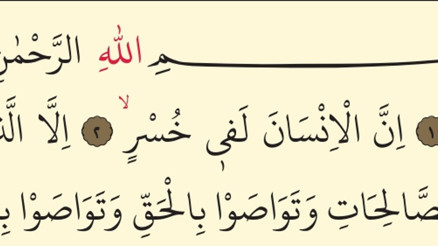 ـــمِ اللّٰهِ الرَّحْمٰنِ
١ اِنَّ الْاِنْسَانَ لَف۪ي خُسْرٍۙ ٢ اِلَّا الَّذ
صَّالِحَاتِ وَتَوَاصَوْا بِالْحَقِّ وَتَوَاصَوْا بِ